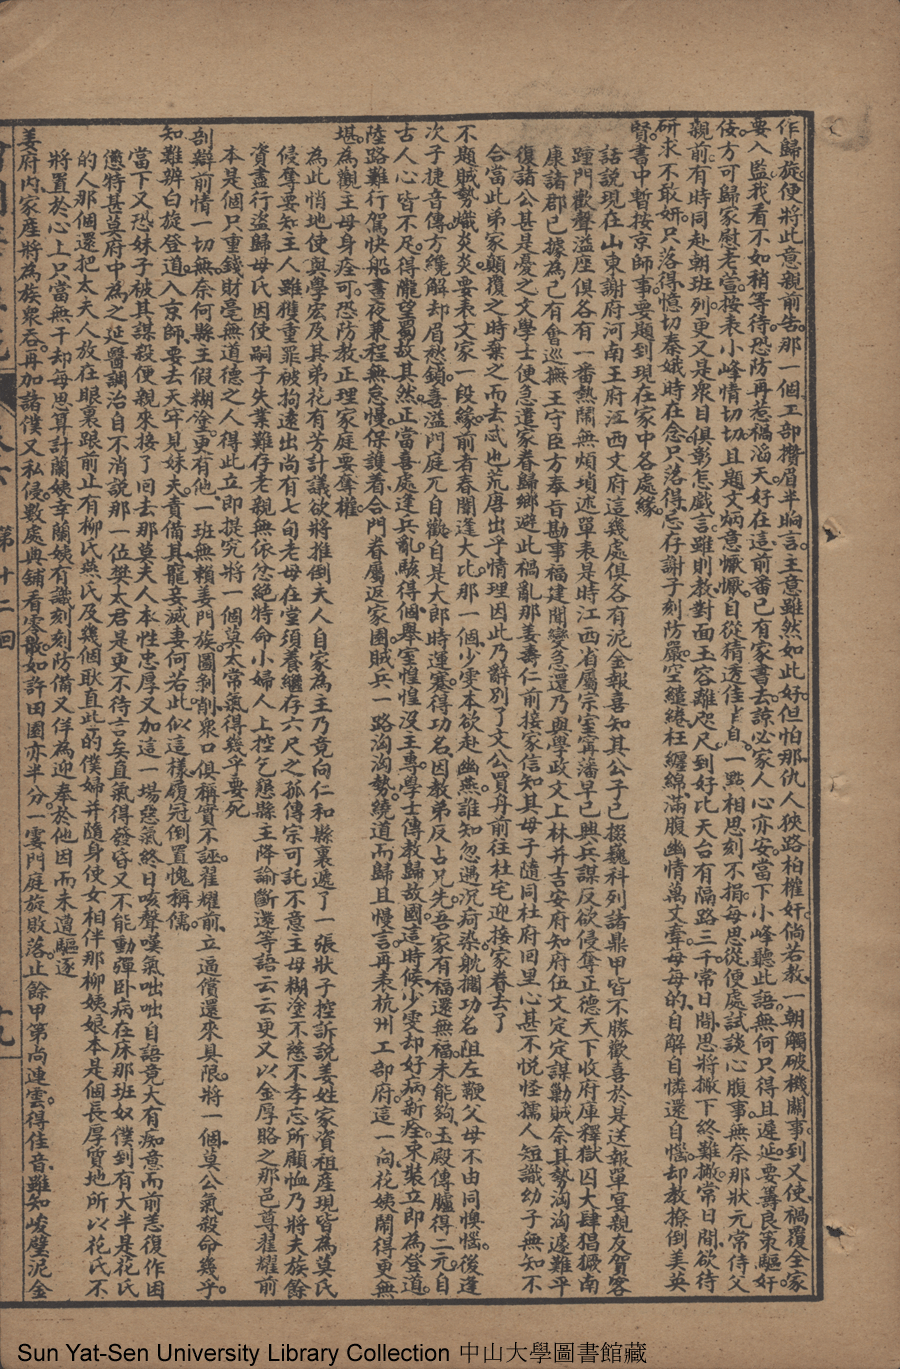 作歸旋。便將此意親前告。那一個工部攢眉半晌言。主意雖然如此好。但怕那仇人狹路柏權奸。倘若教一朝觸破機關事。到又使禍覆全家
要入監我看不如稍等待。恐防再惹禍滔天。好在這前番已有家書去。諒必家人心亦安。當下小峰聽此語。無何只得且遲延。要籌良策驅奸
佞。方可歸家慰老萱。按表小峰情切切。且題文炳意懨懨。自從猜透佳自一點相思刻不捐。每思從便處試談心腹事。無奈那狀元常侍父
親前。有時同赴朝班列。更又是衆目俱彰怎戲言。雖則教對面玉容離咫尺。到好比天台有隔路三千。常日間思將撇下終難撇。常日間欲待
研求不敢妍。只落得憶切秦娥時在念。只落得忘存謝子刻防嚴。空繾綣枉纏綿滿腹幽情萬丈牽。每每的自解自憐還自惱。却教撩倒美英
賢。書中暫按京師事。要題到現在家中各處緣。
話說現在山東謝府河南王府江西文府這幾處俱各有泥金報喜知其公子已掇巍科列諸鼎甲皆不勝歡喜於是送報單宴親友賀客
踵門歡聲溢座俱各有一番熱鬧無煩瑣述單表是時江西省屬宗室甯藩早已興兵謀反欲侵奪正德天下收府庫釋獄囚大肆猖獗南
康諸郡已據為己有會巡撫王守臣方奉旨勘事福建聞變急還乃與學政文上林并吉安府知府伍文定定謀勦賊奈其勢洶洶遽難平
復諸公甚是憂之文學士便急遣家眷歸鄉避此禍亂那姜壽仁前接家信知其母子隨同杜府回里心甚不悅怪孺人短識幼子無知不
合當此弟家顛覆之時棄之而去忒也荒唐出乎情理因此乃辭別了文公買舟前往杜宅迎接家眷去了
不題賊勢熾炎炎。要表文家一段緣。前者春闈逢大比。那一個少雯本欲赴幽燕。誰知忽遇沉疴染。躭擱功名阻左鞭。父母不由同懊惱。後逢
次子捷音傳。方纔解却眉愁鎖。喜溢門庭兀自歡。自是大郎時運蹇。得功名因教弟反占兄先。吾家有福還無福。未能夠玉殿傳臚得二元。自
古人心皆不足。得隴望蜀故其然。正當喜處逢兵亂。駭得個舉室惶惶沒主專。學士傳教歸故國。這時候少雯却好病新痊。束裝立即為登道。
陸路難行駕快船。晝夜兼程無怠慢。保護着合門眷屬返家園。賊兵一路洶洶勢。繞道而歸且慢言。再表杭州工部府。這一向花姨鬧得更無
堪。為觀主母身痊可。恐防教正理家庭要奪權。
為此悄地使與學宏及其弟花有芳計議欲將推倒夫人自家為主乃竟向仁和縣裏遞了一張狀子控訴說姜姓家資租產現皆為莫氏
侵奪要知主人雖獲重罪被拘遠出尚有七旬老母在堂須養繼存六尺之孤傳宗可託不意主母糊塗不慈不孝忘所顧恤乃將夫族餘
資盡行盜歸母氏因使嗣子失業難存老親無依忿絕特命小婦人上控乞懇縣主降諭斷還等語云云更又以金厚賂之那邑尊翟耀前
本是個只重錢財毫無道德之人得此立即提究將一個莫太常氣得幾乎要死
剖辯前情一切無。奈何縣主假糊塗。更有他一班無賴姜門族。圖剝削衆口俱稱實不誣。翟耀前立逼償還來具限。將一個莫公氣殺命幾乎。
知難辨白旋登道。入京師要去天牢見妹夫。責備其寵妾滅妻何若此。似這樣履冠倒置愧稱儒。
當下又恐妹子被其謀殺便親來接了回去那莫夫人本性忠厚又加這一塲惡氣終日咳聲嘆氣咄咄自語竟大有痴意而前恙復作因
憊特甚莫府中為之延醫調治自不消說那一位樊太君是更不待言矣直氣得發昏又不能動彈卧病在床那班奴僕到有大半是花氏
的人那個還把太夫人放在眼裏跟前止有柳氏燕氏及幾個耿直此的僕婦并隨身使女相伴那柳姨娘本是個長厚質地所以花氏不
將置於心上只當無干却每思算計蘭姨幸蘭姨有識刻刻防備又佯為迎奉於他因而未遭驅逐
姜府内家產將為族衆吞。再加諸僕又私侵。數處典舖看雲散。如許田園亦半分。一霎門庭旋敗落。止餘甲第尚連雲。得佳音雖知峻壁泥金
第十二回
十九
Sun Yat-Sen University Library Collection 中山大學圖書館藏